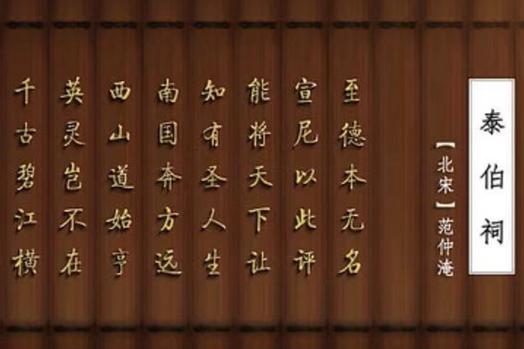 泰伯祠
【北宋】范仲淹
至德本无名
宣尼以此评
能将天下让
知有圣人生
南国奔方远
西山道始亨
英灵岂不在
千古碧江横